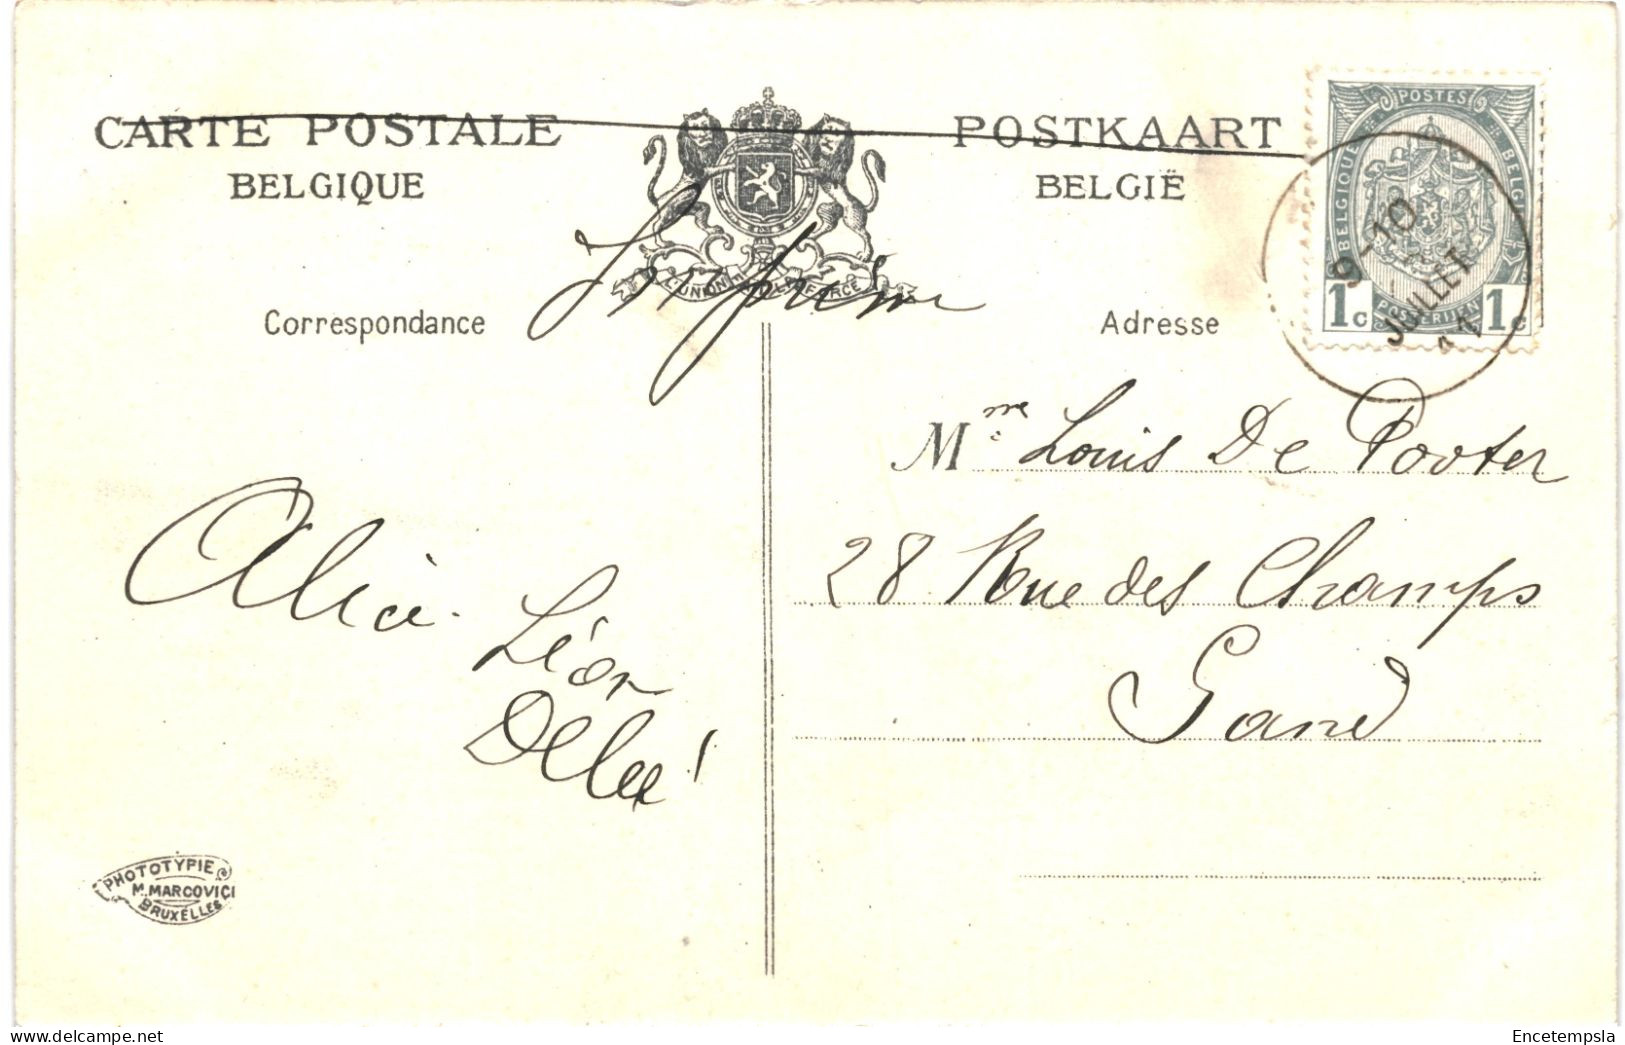 CARTE POSTALE
BELGIQUE
POSTKAART
BELGIË
L'UNION FAIT LA FORCE
Imprimé
Correspondance
Adresse
POSTES
BELGIQUE
BELGIË
POSTERIJEN
1c
1c
9-10
JUILLET
Mme Louis De Pooter
28 Rue des Champs
Gand
Alice.
Léon
PHOTOTYPIE
M. MARCOVICI
BRUXELLES
delcampe.net
Encetempsla